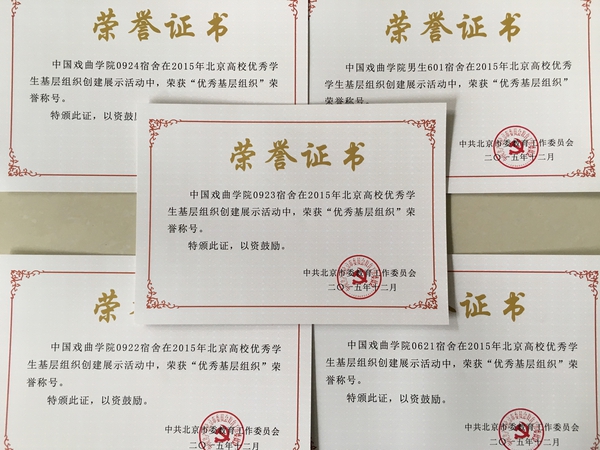 荣誉证书
中国戏曲学院0924宿舍在2015年北京高校优秀学
生基层组织创建展示活动中，荣获“优秀基层组织”荣
誉称号。
特颁此证，以资鼓励
荣誉证书
中国戏曲学院男生601宿舍在2015年北京高校优秀
学生基层组织创建展示活动中，荣获“优秀基层组织”
荣誉称号。
中共北京市委教育工作委员会
二〇一五年十二月
荣誉证书
中国戏曲学院0923宿舍在2015年北京高校优秀学
生基层组织创建展示活动中，荣获“优秀基层组织”荣
誉称号。
特颁此证，以资鼓励。
中共北京市委教育工作委员会
二〇一五年十二月
中国戏曲学院0922宿舍在2015年北京高校优秀学
生基层组织创建展示活动中，荣获“优秀基层组织”荣
誉称号。
特颁此证，以资鼓励。
中共北京市委教育工作委员会
二〇一五年十二月
证书
中国戏曲学院0621宿舍在2015年北京高校优秀学
生基层组织创建展示活动中，荣获“优秀基层组织”荣
誉称号。
特颁此证，以资鼓励。
中共北京市委教育工作委员会
二〇一五年十二月